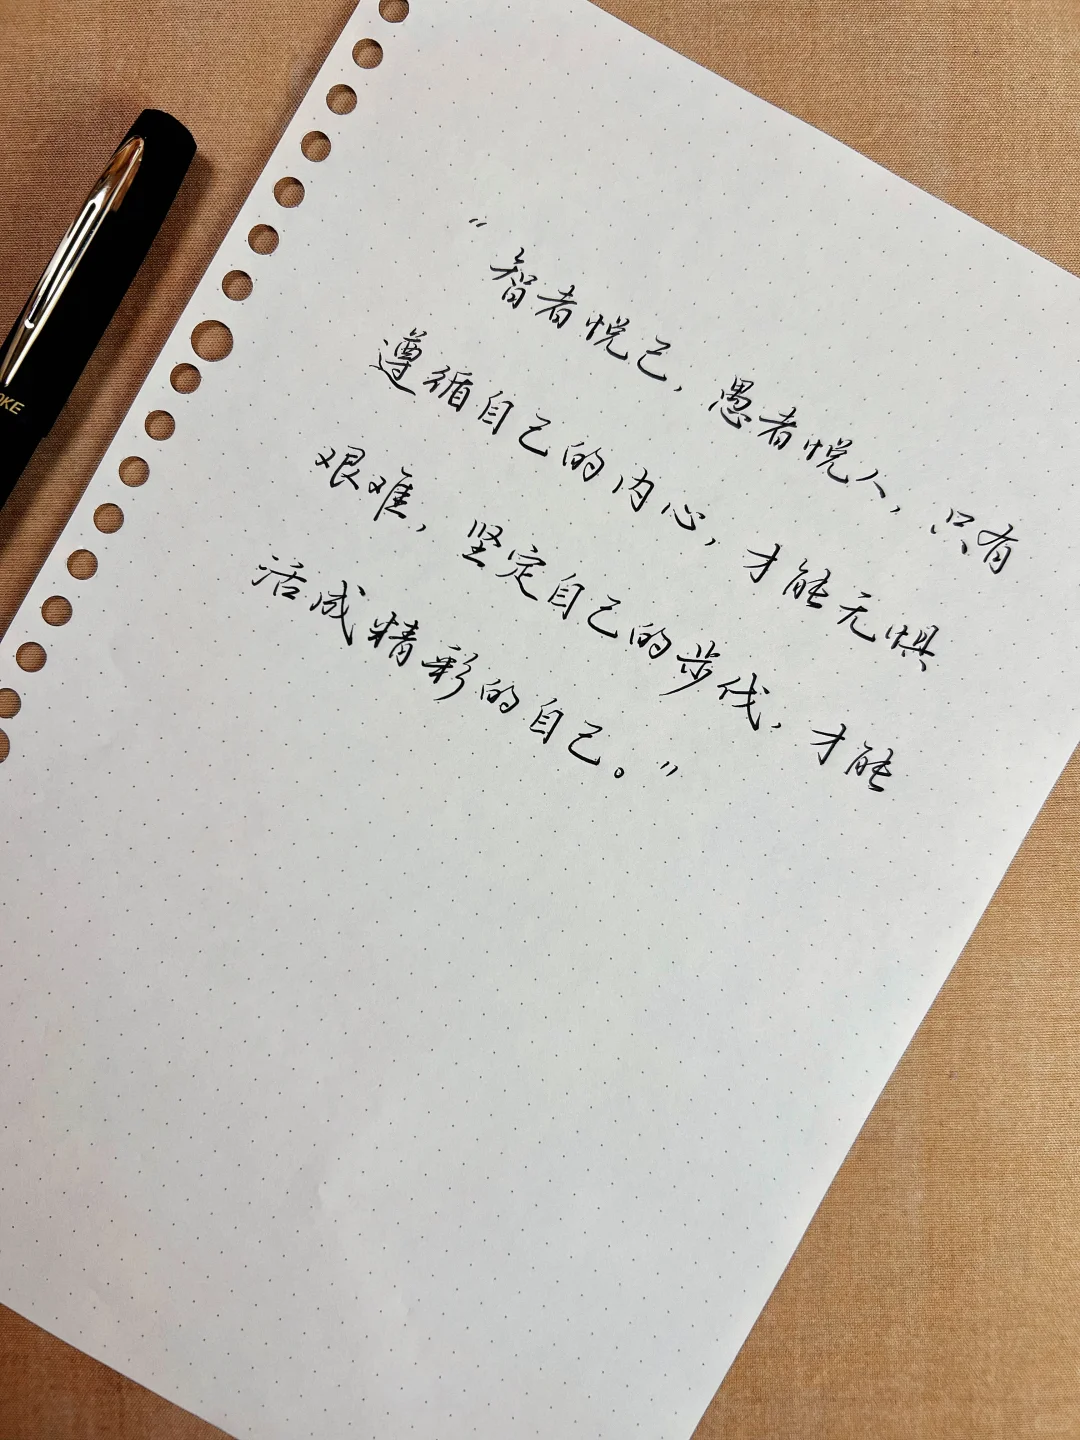 “智者悦己，愚者悦人，只有
遵循自己的内心，才能无惧
艰难，坚定自己的步伐，才能
活成精彩的自己。”
OKE